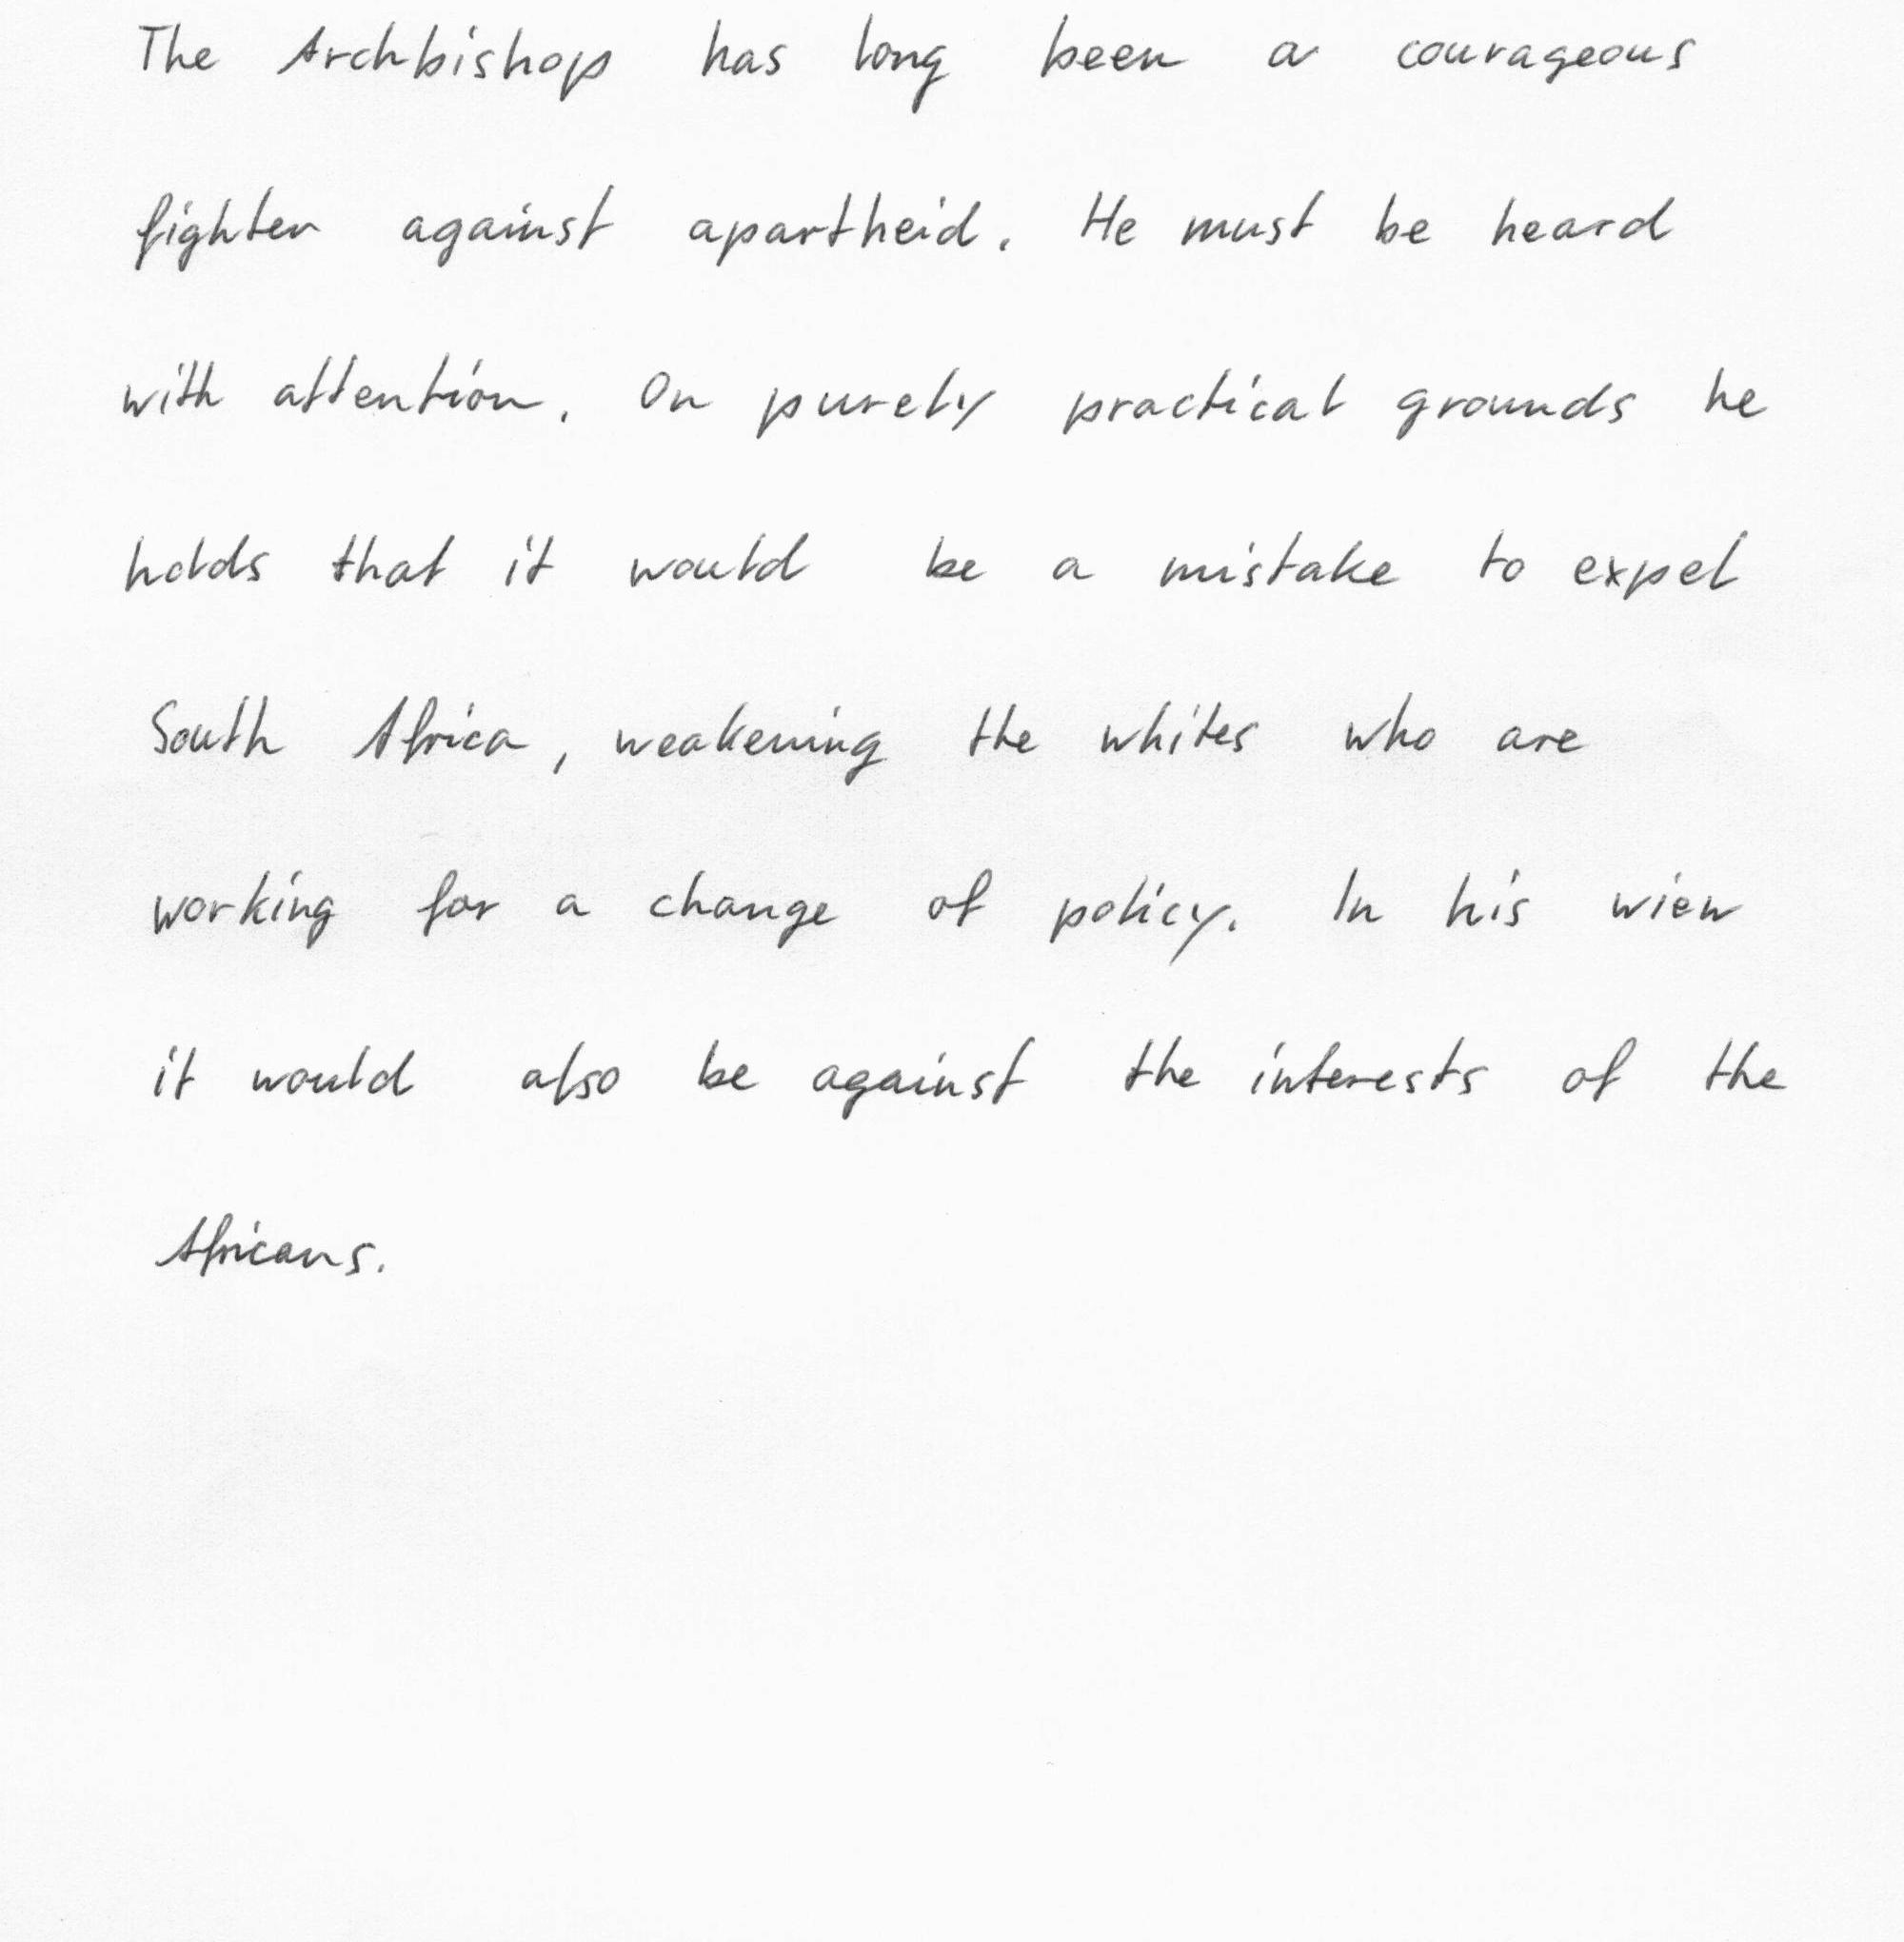 The Archbishop has long been a courageous
fighter against apartheid. He must be heard
with attention. On purely practical grounds he
holds that it would be a mistake to expel
South Africa, weakening the whites who are
working for a change of policy. In his view
it would also be against the interests of the
Africans.